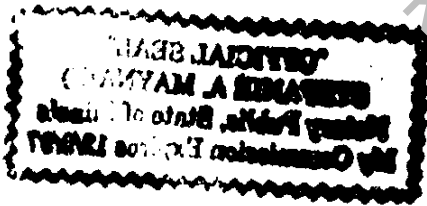 "OFFICIAL SEAL"
A. MAYNARD
Notary Public, State of Illinois
My Commission Expires